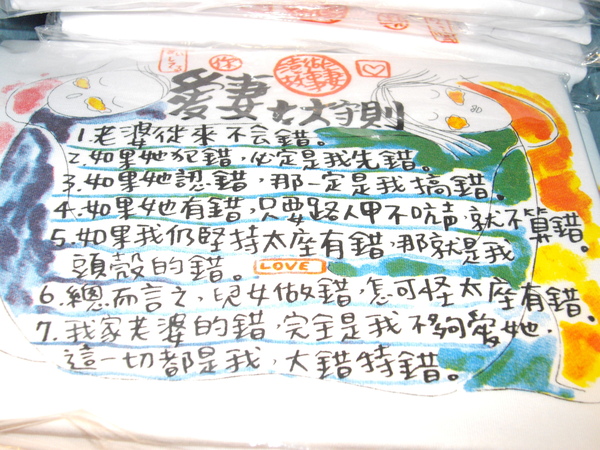 愛妻七大守則
1.老婆從來不会錯。
2.如果她犯錯,必定是我先錯。
3.如果她認錯,那一定是我搞錯。
4.如果她有錯,只要路人甲不吭声,就不算錯。
5.如果我仍堅持太座有錯,那就是我
頭殼的錯。 LOVE
6.總而言之,兒女做錯,怎可怪太座有錯。
7.我家老婆的錯,完全是我不夠愛她,
這一切都是我,大錯特錯。